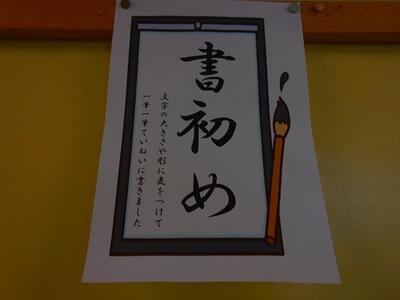 書初め
文字の大きさや形に気をつけて
一筆一筆ていねいに書きました